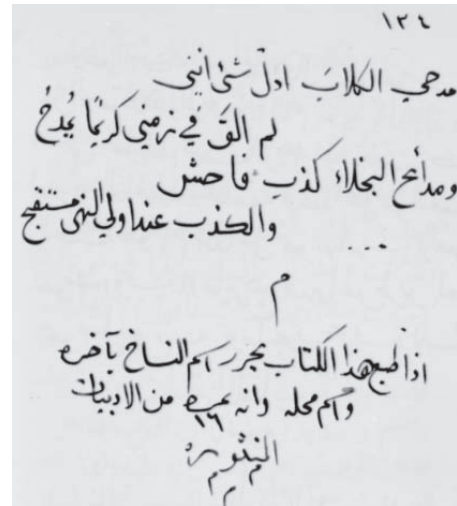 ١٣٤
مدحي الكلابَ ادلّ شئ انني
لم القَ في زمني كريمًا يُمدحُ
ومدائح البخلاء كذب فاحش
والكذب عند اولي النهى مستقبح
...
م
اذا طبع هذا الكتاب يحرر اسم الناسخ بآخره
واسم محله وانه نمرة ١٦ من الادبيات